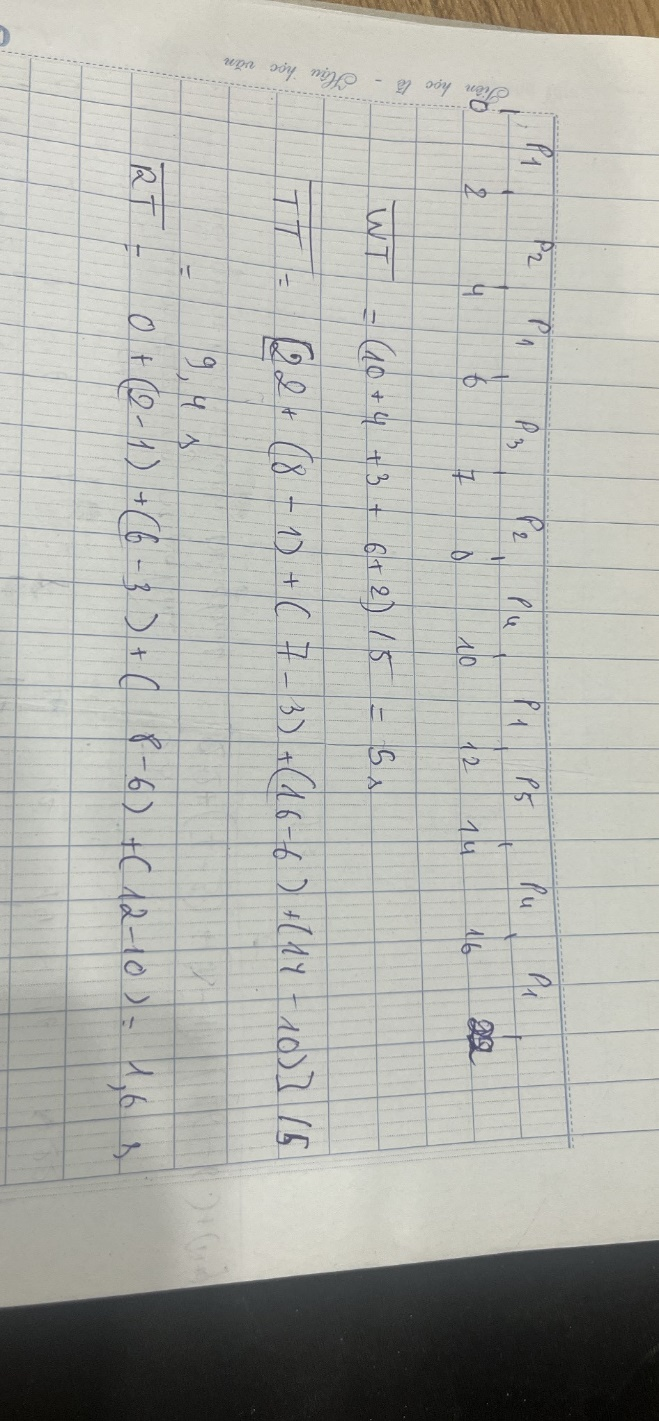 Tiên học lễ - Hậu học văn
P1 P2 P1 P3 P2 P4 P1 P5 P4 P1
0 2 4 6 7 8 10 12 14 16 22
WT = (10 + 4 + 3 + 6 + 2) / 5 = 5 s
TT = [22 + (8 - 1) + (7 - 3) + (16 - 6) + (14 - 10)] / 5
= 9,4 s
RT = 0 + (2 - 1) + (6 - 3) + (8 - 6) + (12 - 10) = 1,6 s